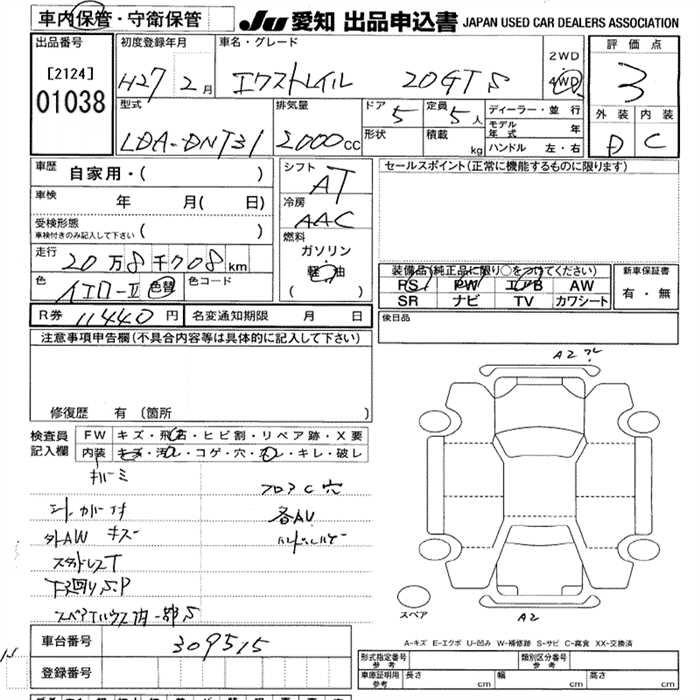 車内保管・守衛保管
JU 愛知 出品申込書 JAPAN USED CAR DEALERS ASSOCIATION
出品番号
[2124]
01038
初度登録年月
H27 2月
車名・グレード
エクストレイル 20GT S
2WD
4WD
評価点
3
外装 内装
D C
型式
LDA-DNT31
排気量
2000cc
ドア 5
形状
定員 5人
積載 kg
ディーラー・並行
モデル年式 年
ハンドル 左・右
車歴 自家用・( )
車検 年 月( 日)
受検形態
車検付きのみ記入して下さい ( )
走行 20万8千708km
色 イエロー II 色替 色コード
R券 11440円 名変通知期限 月 日
シフト
AT
冷房
AAC
燃料
ガソリン
軽油
( )
セールスポイント(正常に機能するものに限ります)
装備品(純正品に限り○をつけてください)
PS PW エアB AW
SR ナビ TV カワシート
新車保証書
有・無
後日品
注意事項申告欄(不具合内容等は具体的に記入して下さい)
修復歴 有 (箇所 )
検査員記入欄
FW キズ・飛石・ヒビ割・リペア跡・X要
内装 キズ・汚レ・コゲ・穴・スレ・キレ・破レ
フロアC穴
外AW キズ
各AU
スタッドレスT
下廻りS.P
スペアTハウス内一部S
車台番号 309515
登録番号
A2
スペア
A2
A-キズ E-エクボ U-凹み W-補修跡 S-サビ C-腐食 XX-交換済
形式指定番号 参考
類別区分番号 参考
車庫証明用 参考 長さ cm 幅 cm 高さ cm